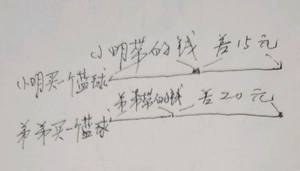 小明带的钱 差15元
小明买一个篮球
弟弟带的钱 差20元
弟弟买一个篮球